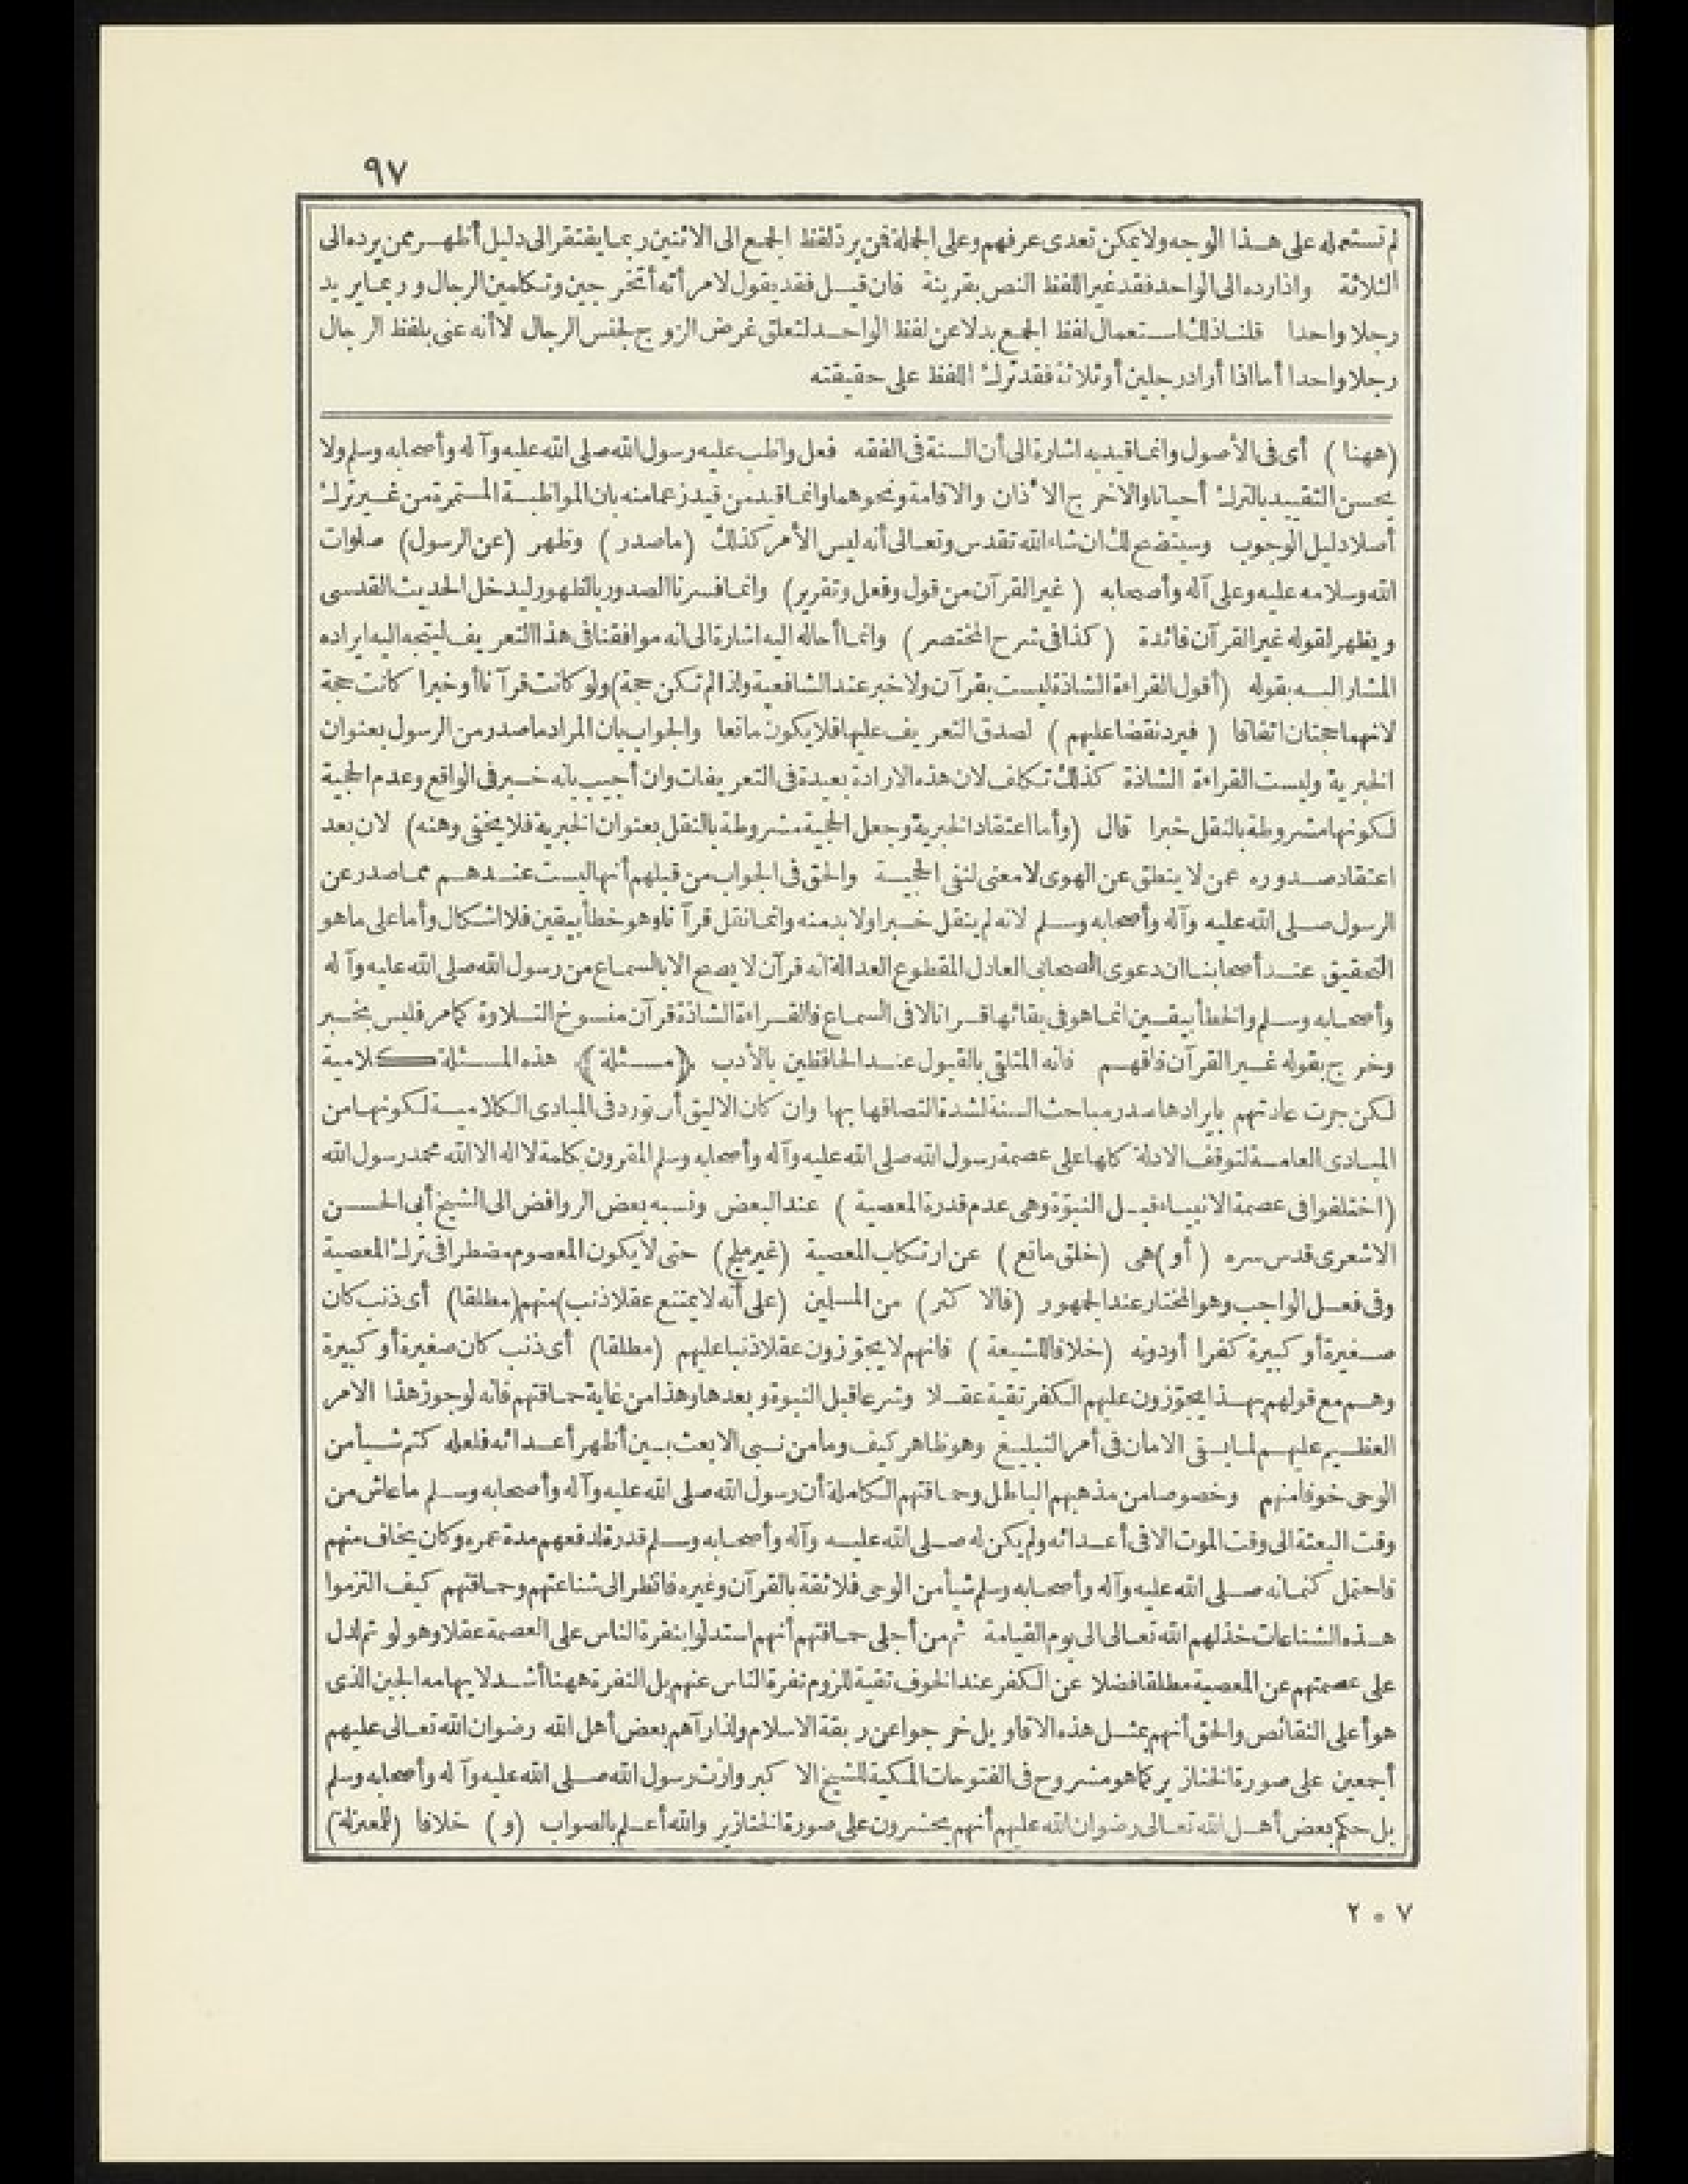 ٩٧
لم تستعمله على هذا الوجه ولا يمكن تعدى عرفهم وعلى الجملة فمن يرد لفظ الجمع الى الاثنين ربما يفتقر الى دليل أظهر ممن يرده الى
الثلاثة واذا رده الى الواحد فقد غير اللفظ النص بقرينة فان قيل فقد يقول لامرأته أتخرجين وتكلمين الرجال وربما يريد
رجلا واحدا قلنا ذلك استعمال لفظ الجمع بدلا عن لفظ الواحد لتعلق غرض الزوج بجنس الرجال لا أنه عنى بلفظ الرجال
رجلا واحدا أما اذا أراد رجلين أو ثلاثة فقد ترك اللفظ على حقيقته
(ههنا) أى فى الأصول وانما قيد به اشارة الى أن السنة فى الفقه فعل واظب عليه رسول الله صلى الله عليه وآله وأصحابه وسلم ولا
يحسن التقييد بالترك أحيانا والا خرج الأذان والاقامة ونحوهما وانما قيد من قيد زعما منه بان المواظبة المستمرة من غير ترك
أصلا دليل الوجوب وسيتضح لك ان شاء الله تقدس وتعالى أنه ليس الأمر كذلك (ما صدر) وظهر (عن الرسول) صلوات
الله وسلامه عليه وعلى آله وأصحابه (غير القرآن من قول وفعل وتقرير) وانما فسرنا الصدور بالظهور ليدخل الحديث القدسى
ويظهر لقوله غير القرآن فائدة (كذا فى شرح المختصر) وانما أحاله اليه اشارة الى انه موافقنا فى هذا التعريف ليتجه اليه ايراده
المشار اليه بقوله (أقول القراءة الشاذة ليست بقرآن ولا خبر عند الشافعية واذا لم تكن حجة) ولو كانت قرآنا أو خبرا كانت حجة
لانهما حجتان اتفاقا (فيرد نقضا عليهم) لصدق التعريف عليها فلا يكون مانعا والجواب بان المراد ما صدر من الرسول بعنوان
الخبرية وليست القراءة الشاذة كذلك تكلف لان هذه الارادة بعيدة فى التعريفات وان أجيب بانه خبر فى الواقع وعدم الحجية
لكونها مشروطة بالنقل خبرا قال (وأما اعتقاد الخبرية وجعل الحجية مشروطة بالنقل بعنوان الخبرية فلا يخفى وهنه) لان بعد
اعتقاد صدوره عمن لا ينطق عن الهوى لا معنى لنفى الحجية والحق فى الجواب من قبلهم أنها ليست عندهم مما صدر عن
الرسول صلى الله عليه وآله وأصحابه وسلم لانه لم ينقل خبرا ولا بد منه وانما نقل قرآنا وهو خطأ بيقين فلا اشكال وأما على ما هو
التحقيق عند أصحابنا ان دعوى الصحابى العادل المقطوع العدالة انه قرآن لا يصح الا بالسماع من رسول الله صلى الله عليه وآله
وأصحابه وسلم والخطأ بيقين انما هو فى بقائها قرانا لا فى السماع فالقراءة الشاذة قرآن منسوخ التلاوة كما مر فليس بخبر
وخرج بقوله غير القرآن فافهم فانه المتلقى بالقبول عند الحافظين بالأدب ﴿مسئلة﴾ هذه المسئلة كلامية
لكن جرت عادتهم بايرادها صدر مباحث السنة لشدة التصاقها بها وان كان الاليق أن تورد فى المبادى الكلامية لكونها من
المبادى العامة لتوقف الادلة كلها على عصمة رسول الله صلى الله عليه وآله وأصحابه وسلم المقرون بكلمة لا اله الا الله محمد رسول الله
(اختلفوا فى عصمة الانبياء قبل النبوّة وهى عدم قدرة المعصية) عند البعض ونسبه بعض الروافض الى الشيخ أبى الحسن
الاشعرى قدس سره (أو) هى (خلق مانع) عن ارتكاب المعصية (غير ملجئ) حتى لا يكون المعصوم مضطرا فى ترك المعصية
وفى فعل الواجب وهو المختار عند الجمهور (فالاكثر) من المسلمين (على أنه لا يمتنع عقلا ذنب) منهم (مطلقا) أى ذنب كان
صغيرة أو كبيرة كفرا أو دونه (خلافا للشيعة) فانهم لا يجوّزون عقلا ذنبا عليهم (مطلقا) أى ذنب كان صغيرة أو كبيرة
وهم مع قولهم بهذا يجوّزون عليهم الكفر تقية عقلا وشرعا قبل النبوة وبعدها وهذا من غاية حماقتهم فانه لو جوز هذا الامر
العظيم عليهم لما بقى الامان فى أمر التبليغ وهو ظاهر كيف وما من نبى الا بعث بين أظهر أعدائه فلعله كتم شيأ من
الوحى خوفا منهم وخصوصا من مذهبهم الباطل وحماقتهم الكاملة أن رسول الله صلى الله عليه وآله وأصحابه وسلم ما عاش من
وقت البعثة الى وقت الموت الا فى أعدائه ولم يكن له صلى الله عليه وآله وأصحابه وسلم قدرة لدفعهم مدة عمره وكان يخاف منهم
فاحتمل كتمانه صلى الله عليه وآله وأصحابه وسلم شيأ من الوحى فلا ثقة بالقرآن وغيره فانظر الى شناعتهم وحماقتهم كيف التزموا
هذه الشناعات خذلهم الله تعالى الى يوم القيامة ثم من أجلى حماقتهم أنهم استدلوا بنفرة الناس على العصمة عقلا وهو لو تم لدل
على عصمتهم عن المعصية مطلقا فضلا عن الكفر عند الخوف تقية للزوم نفرة الناس عنهم بل النفرة ههنا أشد لايهامه الجبن الذى
هو أعلى النقائص والحق أنهم بمثل هذه الاقاويل خرجوا عن ربقة الاسلام ولذا رآهم بعض أهل الله رضوان الله تعالى عليهم
أجمعين على صورة الخنازير كما هو مشروح فى الفتوحات المكية للشيخ الاكبر وارث رسول الله صلى الله عليه وآله وأصحابه وسلم
بل حكم بعض أهل الله تعالى رضوان الله عليهم أنهم يحشرون على صورة الخنازير والله أعلم بالصواب (و) خلافا (للمعتزلة)
٢٠٧